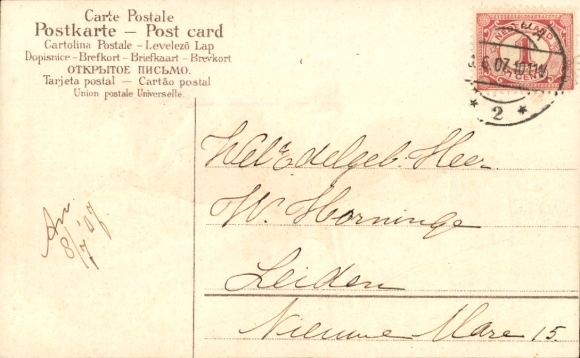 Carte Postale
Postkarte – Post card
Cartolina Postale - Levelező Lap
Dopisnice - Brefkort - Briefkaart - Brevkort
ОТКРЫТОЕ ПИСЬМО.
Tarjeta postal — Cartão postal
Union postale Universelle.
1
CENT
07.10-11V
* 2 *
Wel Edelgeb. Heer
W. Horninge
Leiden
Nieuwe Mare 15.
8/7 '07